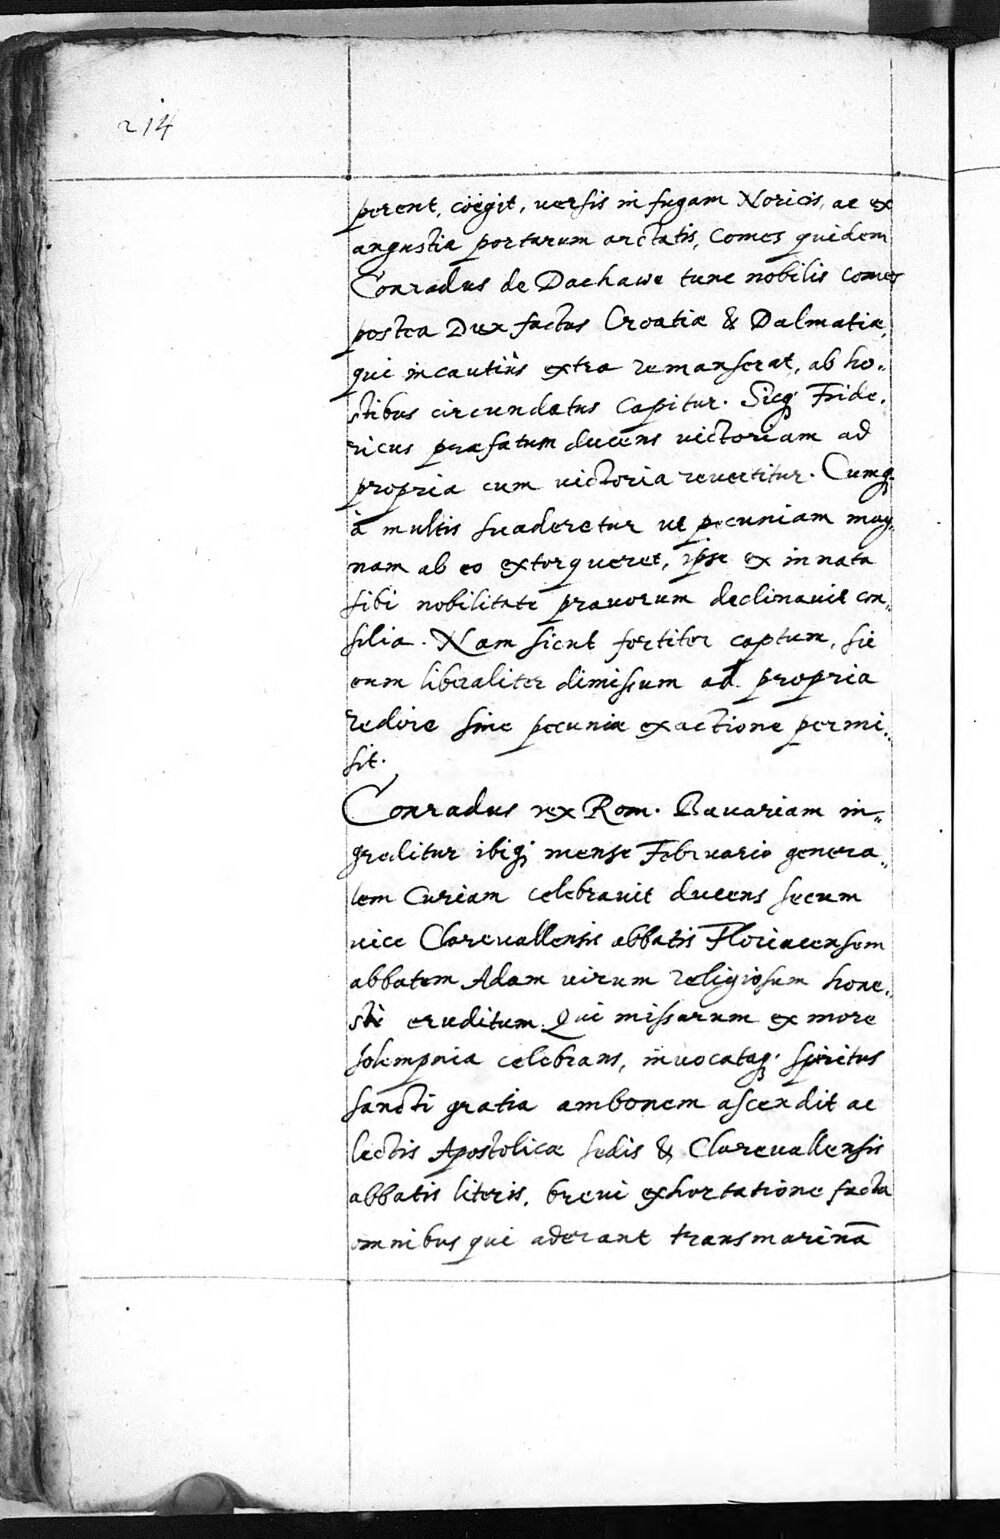 214
perent, coëgit, uersis in fugam Noricis, ac ex
angustia portarum arctatis, Comes quidem
Conradus de Dachawe tunc nobilis comes
postea Dux factus Croatiæ & Dalmatiæ,
qui incautiùs extra remanserat, ab ho„
stibus circundatus capitur. Sicq; Fride„
ricus præfatum ducens uictoriam ad
propria cum uictoria reuertitur. Cumq;
à multis suaderetur ut pecuniam mag„
nam ab eo extorqueret, ipse ex innata
sibi nobilitate prauorum declinauit con„
silia. Nam sicut fortiter captum, sic
eum liberaliter dimissum ad propria
redire sine pecuniæ exactione permi„
sit.
Conradus rex Rom. Bauariam in„
greditur ibiq; mense Februario genera„
lem Curiam celebrauit ducens secum
uice Clareuallensis abbatis Floriacensem
abbatem Adam uirum religiosum hone„
stè eruditum. Qui missarum ex more
solempnia celebrans, inuocataq; spiritus
sancti gratia ambonem ascendit ac
lectis Apostolicæ sedis & Clareuallensis
abbatis literis, breui exhortatione facta
omnibus qui aderant transmarinā